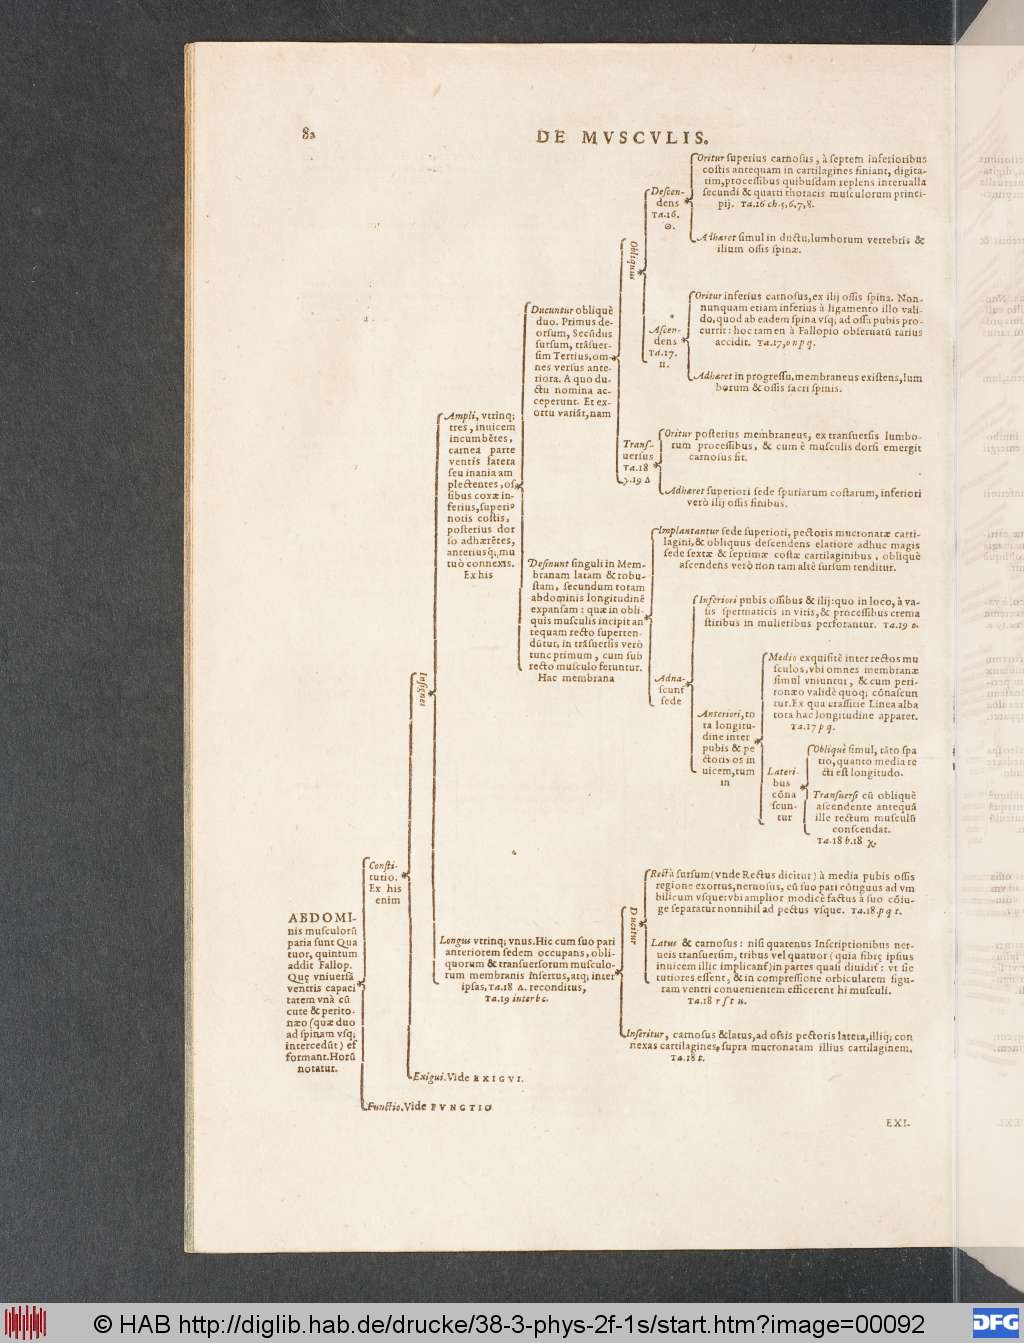 82
DE MVSCVLIS.
ABDOMI-
nis musculorũ
paria sunt Qua
tuor, quintum
addit Fallop.
Quę vniuersũ
ventris capaci
tatem vnà cũ
cute & perito-
næo (quæ duo
ad spinam vsq;
intercedũt) ef
formant. Horũ
notatur.
Consti-
tutio.
Ex his
enim
Insignes
Ampli, vtrinq;
tres, inuicem
incumbẽtes,
carnea parte
ventis latera
seu inania am
plectentes, os
sibus coxæ in-
ferius, superi⁹
notis costis,
posterius dor
so adhærẽtes,
anteriusq;, mu
tuò connexis.
Ex his
Ducuntur obliquè
duo. Primus de-
orsum, Secũdus
sursum, trãsuer-
sim Tertius, om-
nes versus ante-
riora. A quo du-
ctu nomina ac-
ceperunt. Et ex-
ortu variãt, nam
Obliquus
Descen-
dens
Ta.16.
Θ.
Oritur superius carnosus, à septem inferioribus
costis antequam in cartilagines finiant, digita-
tim, processibus quibusdam replens interualla
secundi & quarti thoracis musculorum princi-
pij. Ta.16 ch.5,6,7,8.
Adhæret simul in ductu, lumborum vertebris &
ilium ossis spinæ.
Ascen-
dens
Ta.17.
Oritur inferius carnosus, ex ilij ossis spina. Non-
nunquam etiam inferius à ligamento illo vali-
do, quod ab eadem spina vsq; ad ossa pubis pro-
currit: hoc tamen à Fallopio obseruatũ rarius
accidit. Ta.17, o n p q.
Adhæret in progressu, membraneus existens, lum
borum & ossis sacri spinis.
Transf-
uersus
Ta.18
γ.19 Δ
Oritur posterius membraneus, ex transuersis lumbo-
rum processibus, & cum è musculis dorsi emergit
carnosus fit.
Adhæret superiori sede spuriarum costarum, inferiori
verò ilij ossis finibus.
Desinunt singuli in Mem-
branam latam & robu-
stam, secundum totam
abdominis longitudinẽ
expansam: quæ in obli-
quis musculis incipit an
tequam recto superten-
dũtur, in trãsuersis verò
tunc primum, cum sub
recto musculo feruntur.
Hæc membrana
Implantantur sede superiori, pectoris mucronatæ carti-
lagini, & obliquus descendens elatiore adhuc magis
sede sextæ & septimæ costæ cartilaginibus, obliquè
ascendens verò non tam altè sursum tenditur.
Adna-
scunt
sede
Inferiori pubis ossibus & ilij: quo in loco, à va-
sis spermaticis in viris, & processibus crema
stiribus in mulieribus perforantur. Ta.19 o.
Anteriori, to
ta longitu-
dine inter
pubis & pe
ctoris os in
uicem, tum
in
Medio exquisitè inter rectos mu
sculos, vbi omnes membranæ
simul vniuntur, & cum peri-
tonæo validè quoq; cõnascun
tur. Ex qua crassitie Linea alba
tota hac longitudine apparet.
Ta.17 p q.
Lateri-
bus
cõna
scun-
tur
Obliquè simul, tãto spa
tio, quanto media re
cti est longitudo.
Transuersi cũ obliquè
ascendente antequã
ille rectum musculũ
conscendat.
Ta.18 b.18 χ.
Longus vtrinq; vnus. Hic cum suo pari
anteriorem sedem occupans, obli-
quorum & transuersorum musculo-
rum membranis insertus, atq; inter
ipsas, Ta.18 Δ. reconditus,
Ta.19 inter b c.
Ducitur
Rectà sursum (vnde Rectus dicitur) à media pubis ossis
regione exortus, neruosus, cũ suo pari cõtiguus ad vm
bilicum vsque: vbi amplior modicè factus à suo cõiu-
ge separatur nonnihil ad pectus vsque. Ta.18. p q r.
Latus & carnosus: nisi quatenus Inscriptionibus ner-
ueis transuersim, tribus vel quatuor (quia fibrę ipsius
inuicem illic implicant) in partes quasi diuidit: vt sic
tutiores essent, & in compressione orbicularem figu-
ram ventri conuenientem efficerent hi musculi.
Ta.18 r s t u.
Inseritur, carnosus & latus, ad ossis pectoris latera, illiq; con
nexas cartilagines, supra mucronatam illius cartilaginem.
Ta.18 t.
Exigui. Vide EXIGVI.
Functio. Vide FVNCTIO
EXI.
© HAB http://diglib.hab.de/drucke/38-3-phys-2f-1s/start.htm?image=00092
DFG